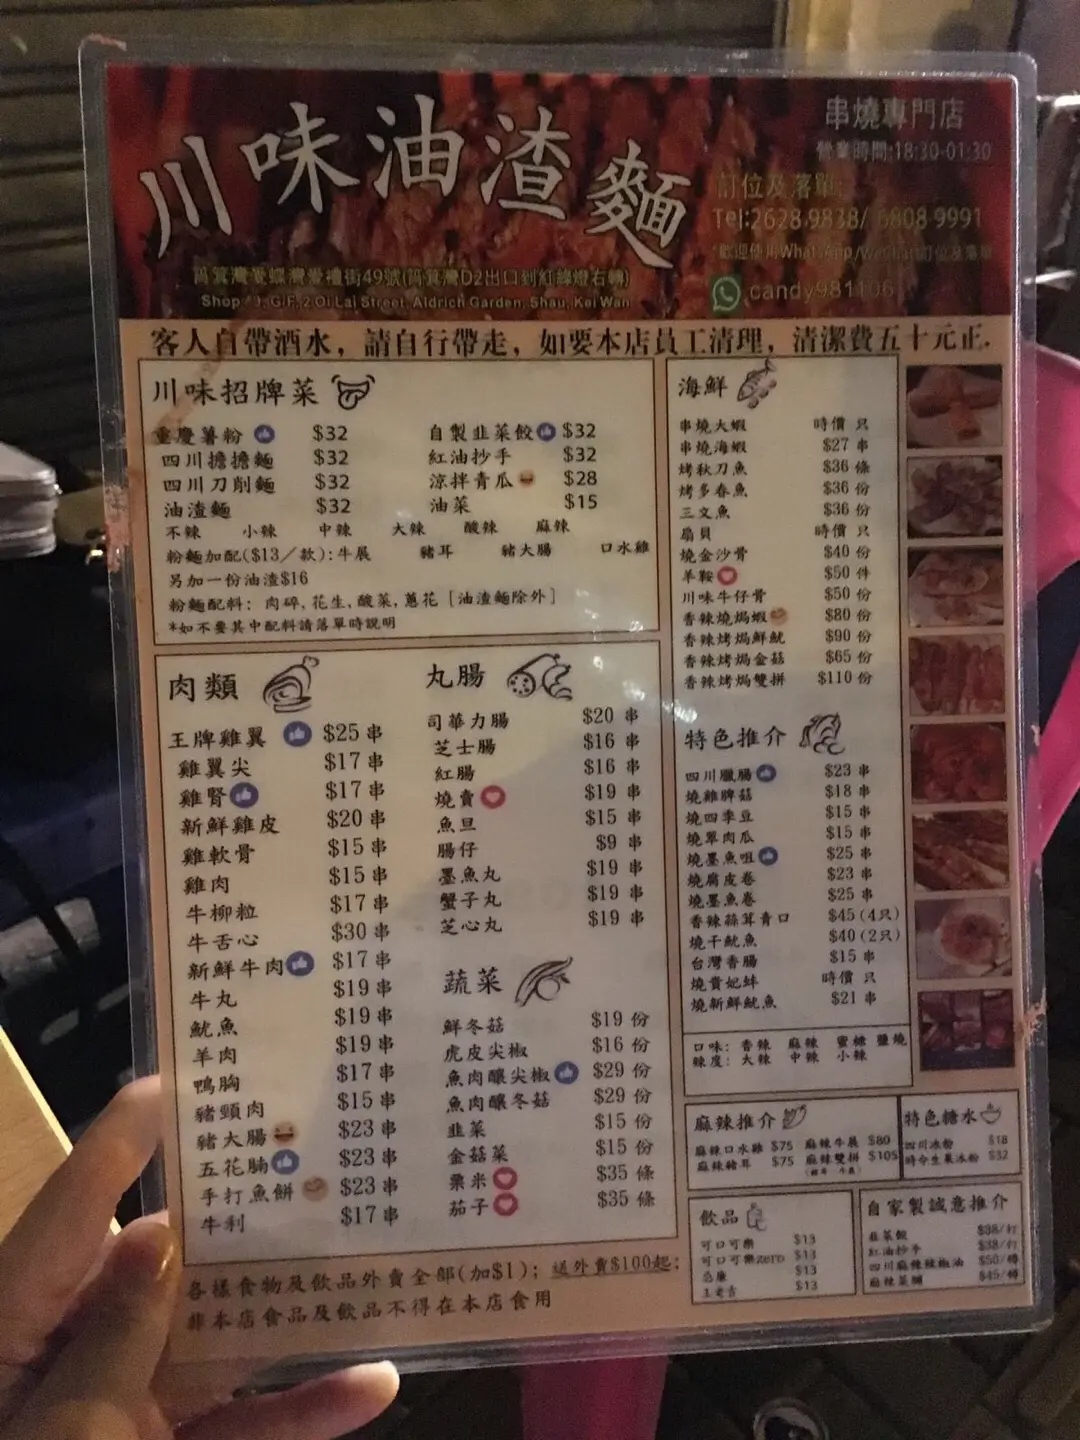 川味油渣麵
串燒專門店
營業時間:18:30-01:30
訂位及落單:
Tel:2628 9838/ 6808 9991
*歡迎使用WhatsApp/WeChat訂位及落單
candy981106
筲箕灣愛蝶灣愛禮街49號(筲箕灣D2出口到紅綠燈右轉)
G/F, 2 Oi Lai Street, Aldrich Garden, Shau Kei Wan
客人自帶酒水，請自行帶走，如要本店員工清理，清潔費五十元正.
川味招牌菜
重慶薯粉 $32
四川擔擔麵 $32
四川刀削麵 $32
油渣麵 $32
自製韭菜餃 $32
紅油抄手 $32
涼拌青瓜 $28
油菜 $15
不辣 小辣 中辣 大辣 酸辣 麻辣
粉麵加配($13／款):牛展 豬耳 豬大腸 口水雞
另加一份油渣$16
粉麵配料: 肉碎,花生,酸菜,蔥花［油渣麵除外］
*如不要其中配料請落單時說明
肉類
王牌雞翼 $25 串
雞翼尖 $17 串
雞腎 $17 串
新鮮雞皮 $20 串
雞軟骨 $15 串
雞肉 $15 串
牛柳粒 $17 串
牛舌心 $30 串
新鮮牛肉 $17 串
牛丸 $19 串
魷魚 $19 串
羊肉 $19 串
鴨胸 $17 串
豬頸肉 $15 串
豬大腸 $23 串
五花腩 $23 串
手打魚餅 $23 串
牛利 $17 串
丸腸
司華力腸 $20 串
芝士腸 $16 串
紅腸 $16 串
燒賣 $19 串
魚旦 $15 串
腸仔 $9 串
墨魚丸 $19 串
蟹子丸 $19 串
芝心丸 $19 串
蔬菜
鮮冬菇 $19 份
虎皮尖椒 $16 份
魚肉釀尖椒 $29 份
魚肉釀冬菇 $29 份
韭菜 $15 份
金菇菜 $15 份
粟米 $35 條
茄子 $35 條
海鮮
串燒大蝦 時價 只
串燒海蝦 $27 串
烤秋刀魚 $36 條
烤多春魚 $36 份
三文魚 $36 份
扇貝 時價 只
燒金沙骨 $40 份
羊鞍 $50 件
川味牛仔骨 $50 份
香辣燒焗蝦 $80 份
香辣烤焗鮮魷 $90 份
香辣烤焗金菇 $65 份
香辣烤焗雙拼 $110 份
特色推介
四川臘腸 $23 串
燒雞脾菇 $18 串
燒四季豆 $15 串
燒翠肉瓜 $15 串
燒墨魚咀 $25 串
燒腐皮卷 $23 串
燒墨魚卷 $25 串
香辣蒜茸青口 $45 (4只)
燒干魷魚 $40 (2只)
台灣香腸 $15 串
燒貴妃蚌 時價 只
燒新鮮魷魚 $21 串
口味: 香辣 麻辣 蜜糖 鹽燒
辣度: 大辣 中辣 小辣
麻辣推介
麻辣口水雞 $75 麻辣牛展 $80
麻辣豬耳 $75 麻辣雙拼 $105
特色糖水
四川冰粉 $18
時令生果冰粉 $32
飲品
可口可樂 $13
可口可樂zero $13
忌廉 $13
王老吉 $13
自家製誠意推介
韭菜餃 $38/打
紅油抄手 $38/打
四川麻辣辣椒油 $50/樽
麻辣菜脯 $45/樽
各樣食物及飲品外賣全部(加$1)；送外賣$100起；
非本店食品及飲品不得在本店食用